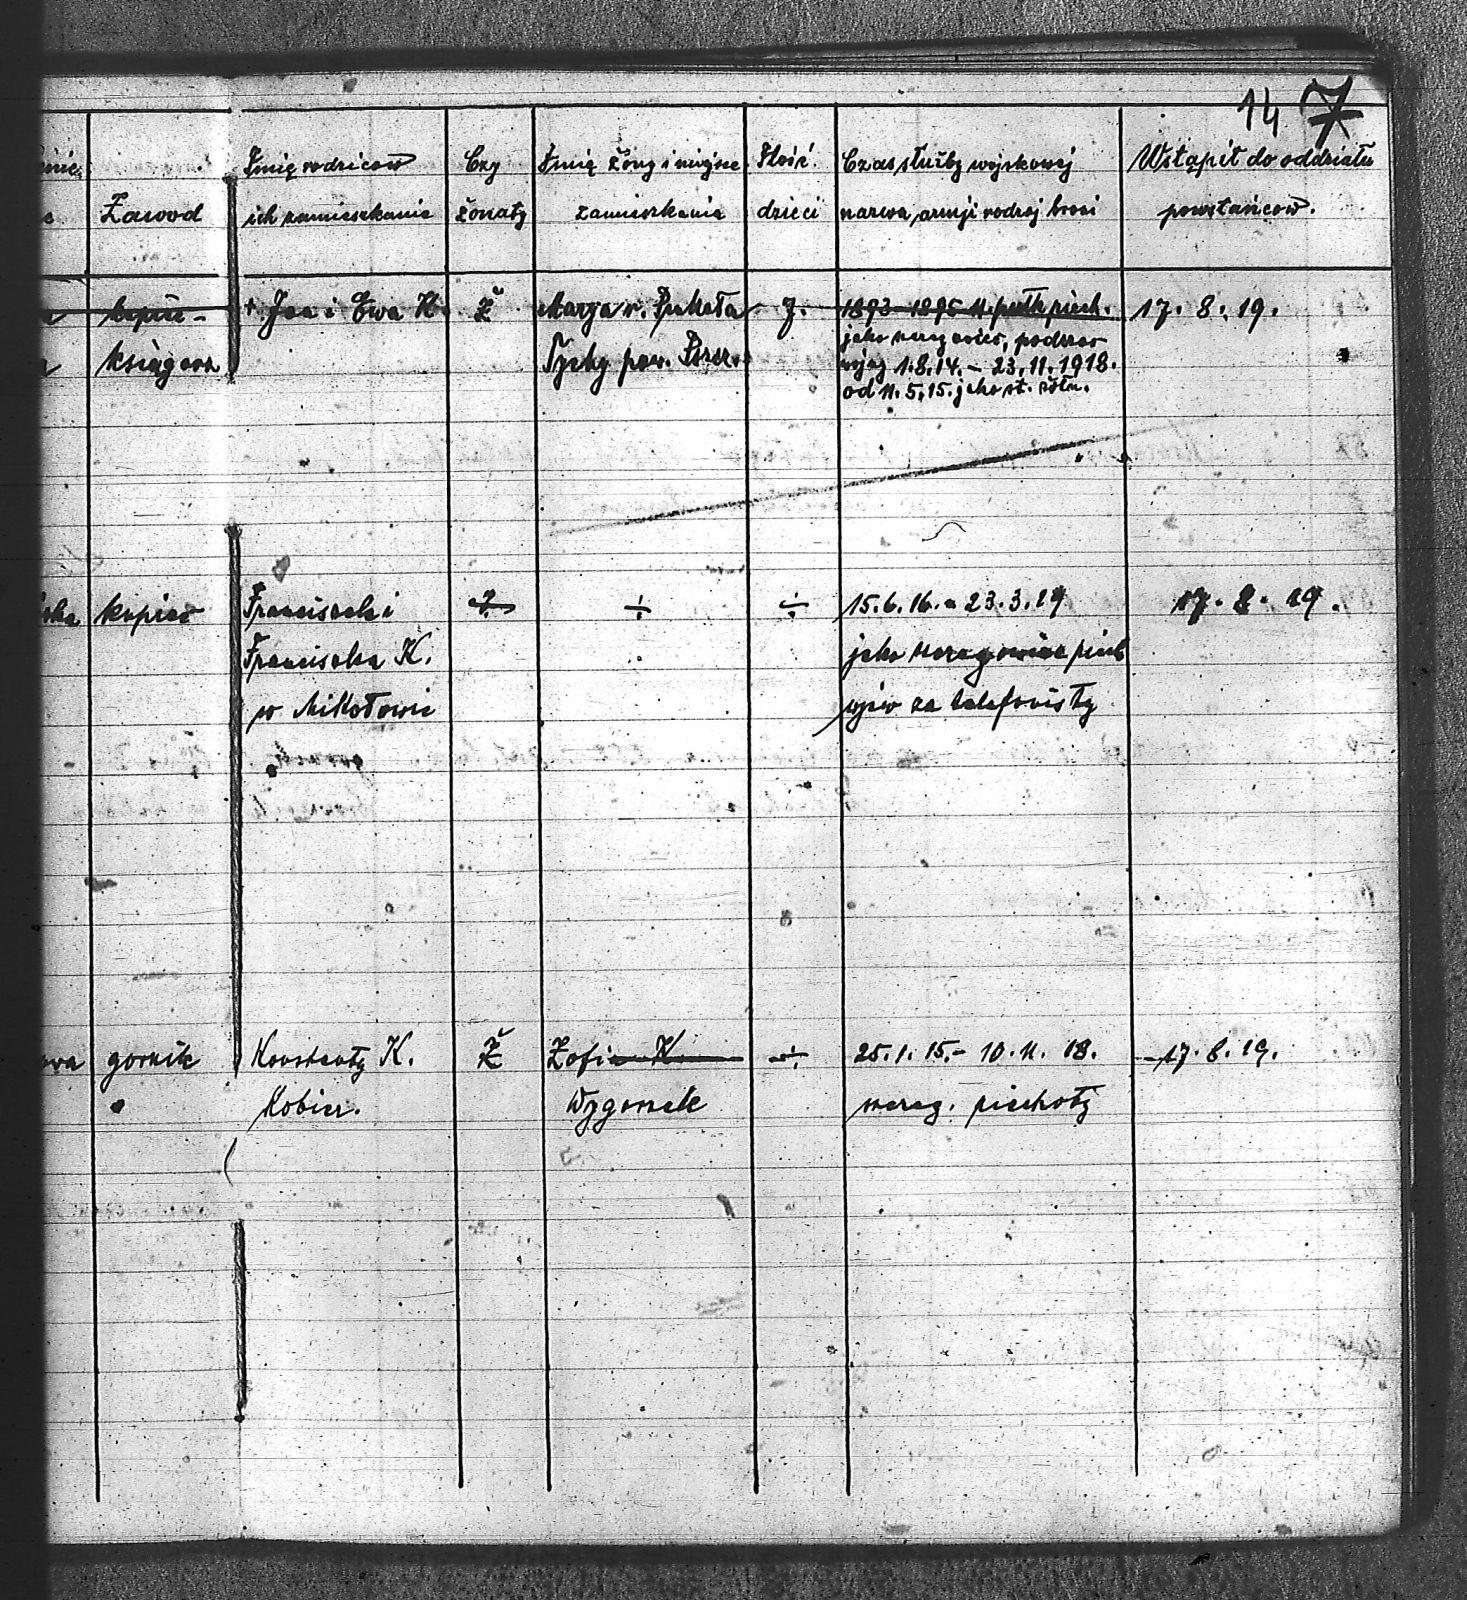 14 7
Zawod
Imię rodziców
ich zamieszkanie
Czy
żonaty
Imię żony i miejsce
zamieszkania
Ilość
dzieci
Czas służby wojskowej
nazwa, armji rodzaj broni
Wstąpił do oddziału
powstańcow.
księgow
+ Jan i Ewa K.
Ż
Marja r.
Tychy pow.
7.
1893 - 1895 11. pułk piech.
jako
1.8.14. - 23.11.1918.
od 11.5.15. jako st. żołn.
17. 8. 19.
Franciszek i
Franciszka K.
w Mikołowie
÷
÷
15.6.16. - 23.3.19
jako
za telefonisty
17. 8. 19.
gornik
Konstanty K.
Kobier.
Ż
Zofia K
Wygorzele
÷
25.1.15. - 10.11.18.
szereg. piechoty
17. 8. 19.